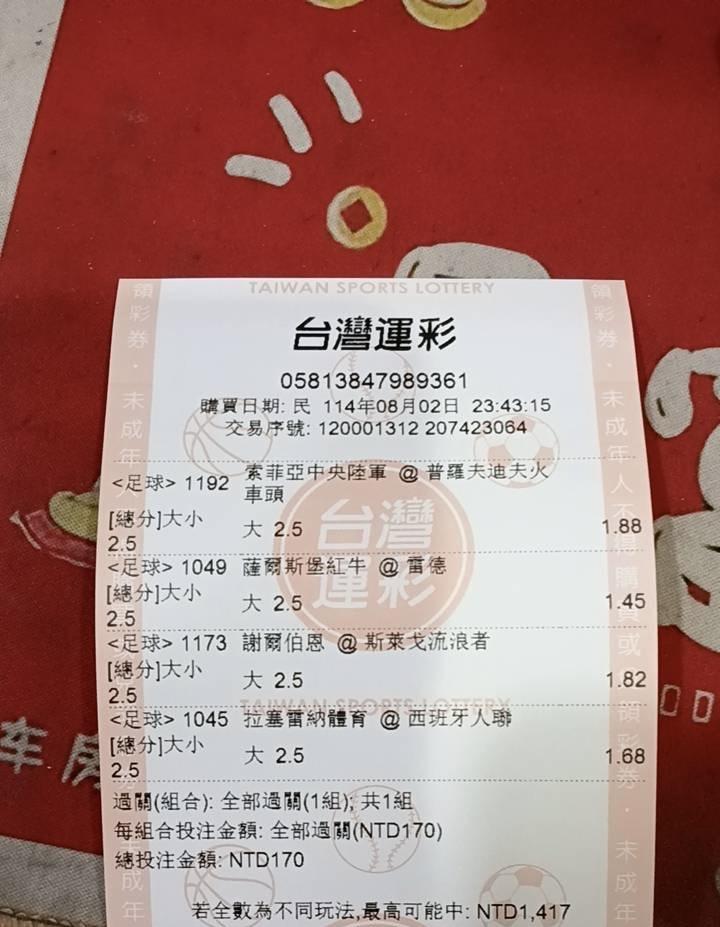 TAIWAN SPORTS LOTTERY
台灣運彩
05813847989361
購買日期: 民 114年08月02日 23:43:15
交易序號: 120001312 207423064
<足球> 1192 索菲亞中央陸軍 @ 普羅夫迪夫火
車頭
[總分]大小
2.5 大 2.5 1.88
<足球> 1049 薩爾斯堡紅牛 @ 雷德
[總分]大小
2.5 大 2.5 1.45
<足球> 1173 謝爾伯恩 @ 斯萊戈流浪者
[總分]大小
2.5 大 2.5 1.82
<足球> 1045 拉塞雷納體育 @ 西班牙人聯
[總分]大小
2.5 大 2.5 1.68
過關(組合): 全部過關(1組); 共1組
每組合投注金額: 全部過關(NTD170)
總投注金額: NTD170
若全數為不同玩法,最高可能中: NTD1,417
台灣
運彩
TAIWAN SPORTS LOTTERY
領彩券．未成年人
領彩券．未成年人不得購買或領彩券．未成年
车房